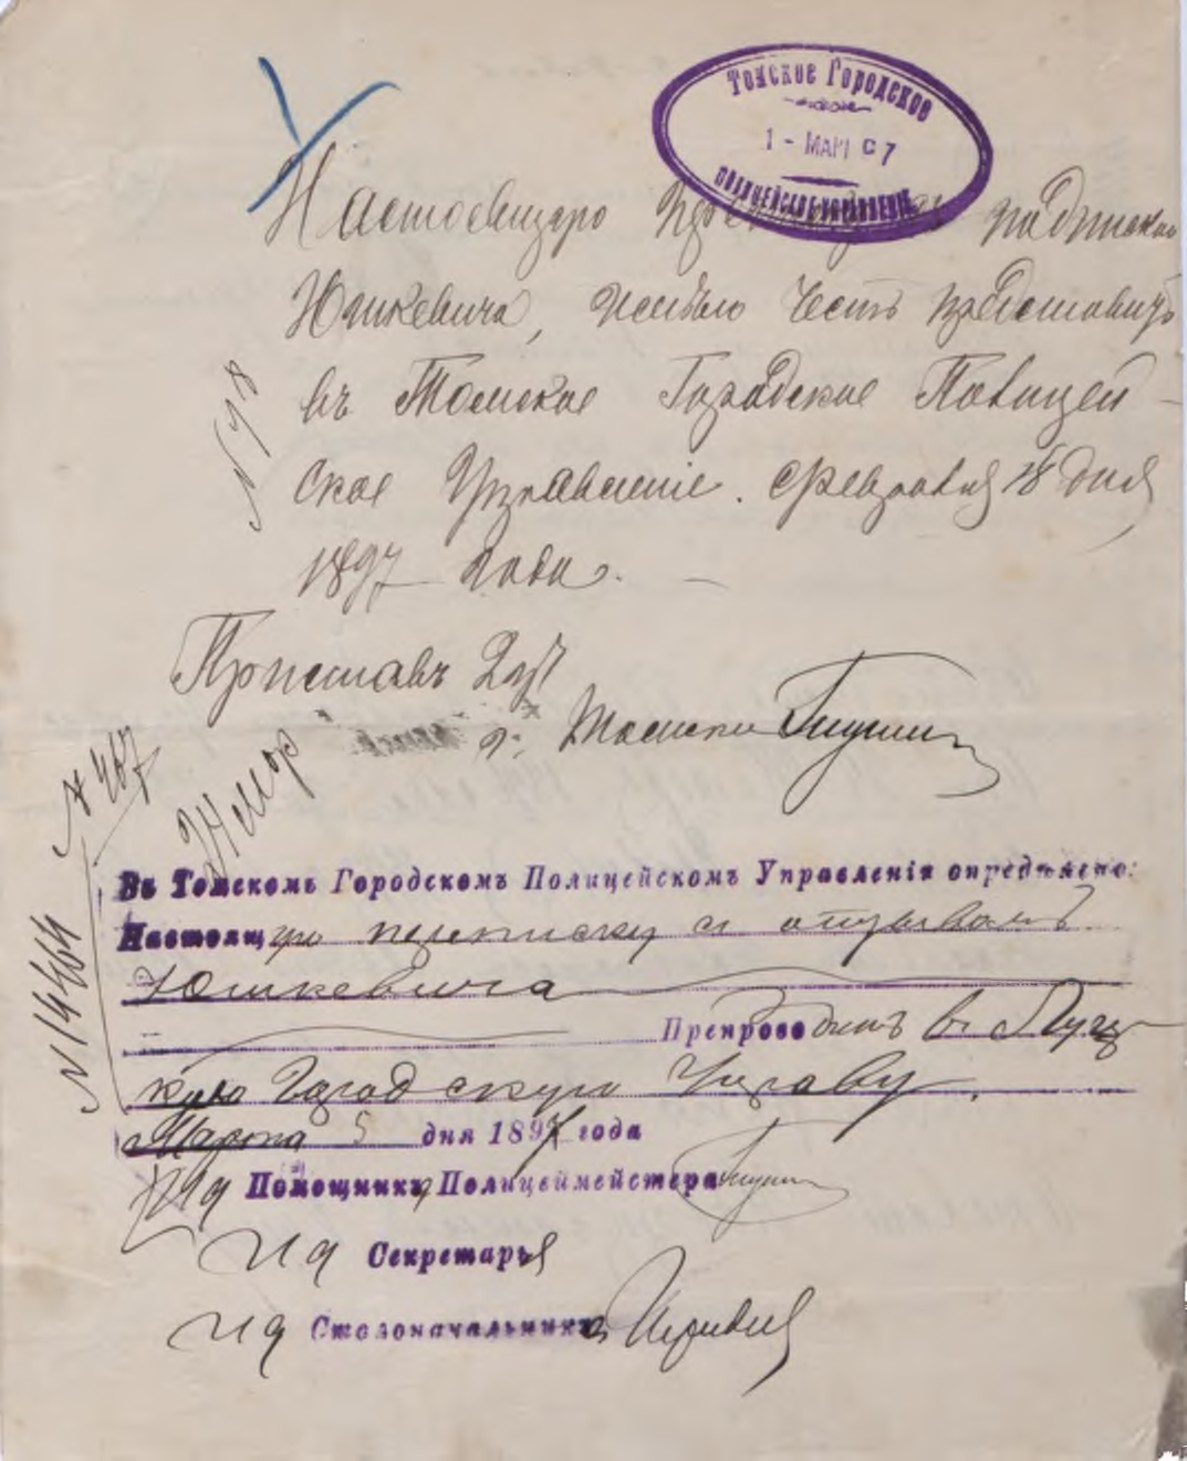 Томское Городское
1 - МАР 97
ПОЛИЦЕЙСКОЕ УПРАВЛЕНІЕ
Настоящую съ подпискою
Юшкевича, имѣю честь представить
въ Томское Городское Полицей-
ское Управленіе. Февраля 18 дня
1897 года. —
Приставъ
г. Томска
№ 467
№ 14464
Въ Томскомъ Городскомъ Полицейскомъ Управленіи опредѣлено:
Настоящую переписку съ отзывомъ
Юшкевича
Препроводить въ Луц-
кую Городскую Управу.
Марта 5 дня 1897 года
Ид Помощника Полицеймейстера
Ид Секретаря
Ид Столоначальника